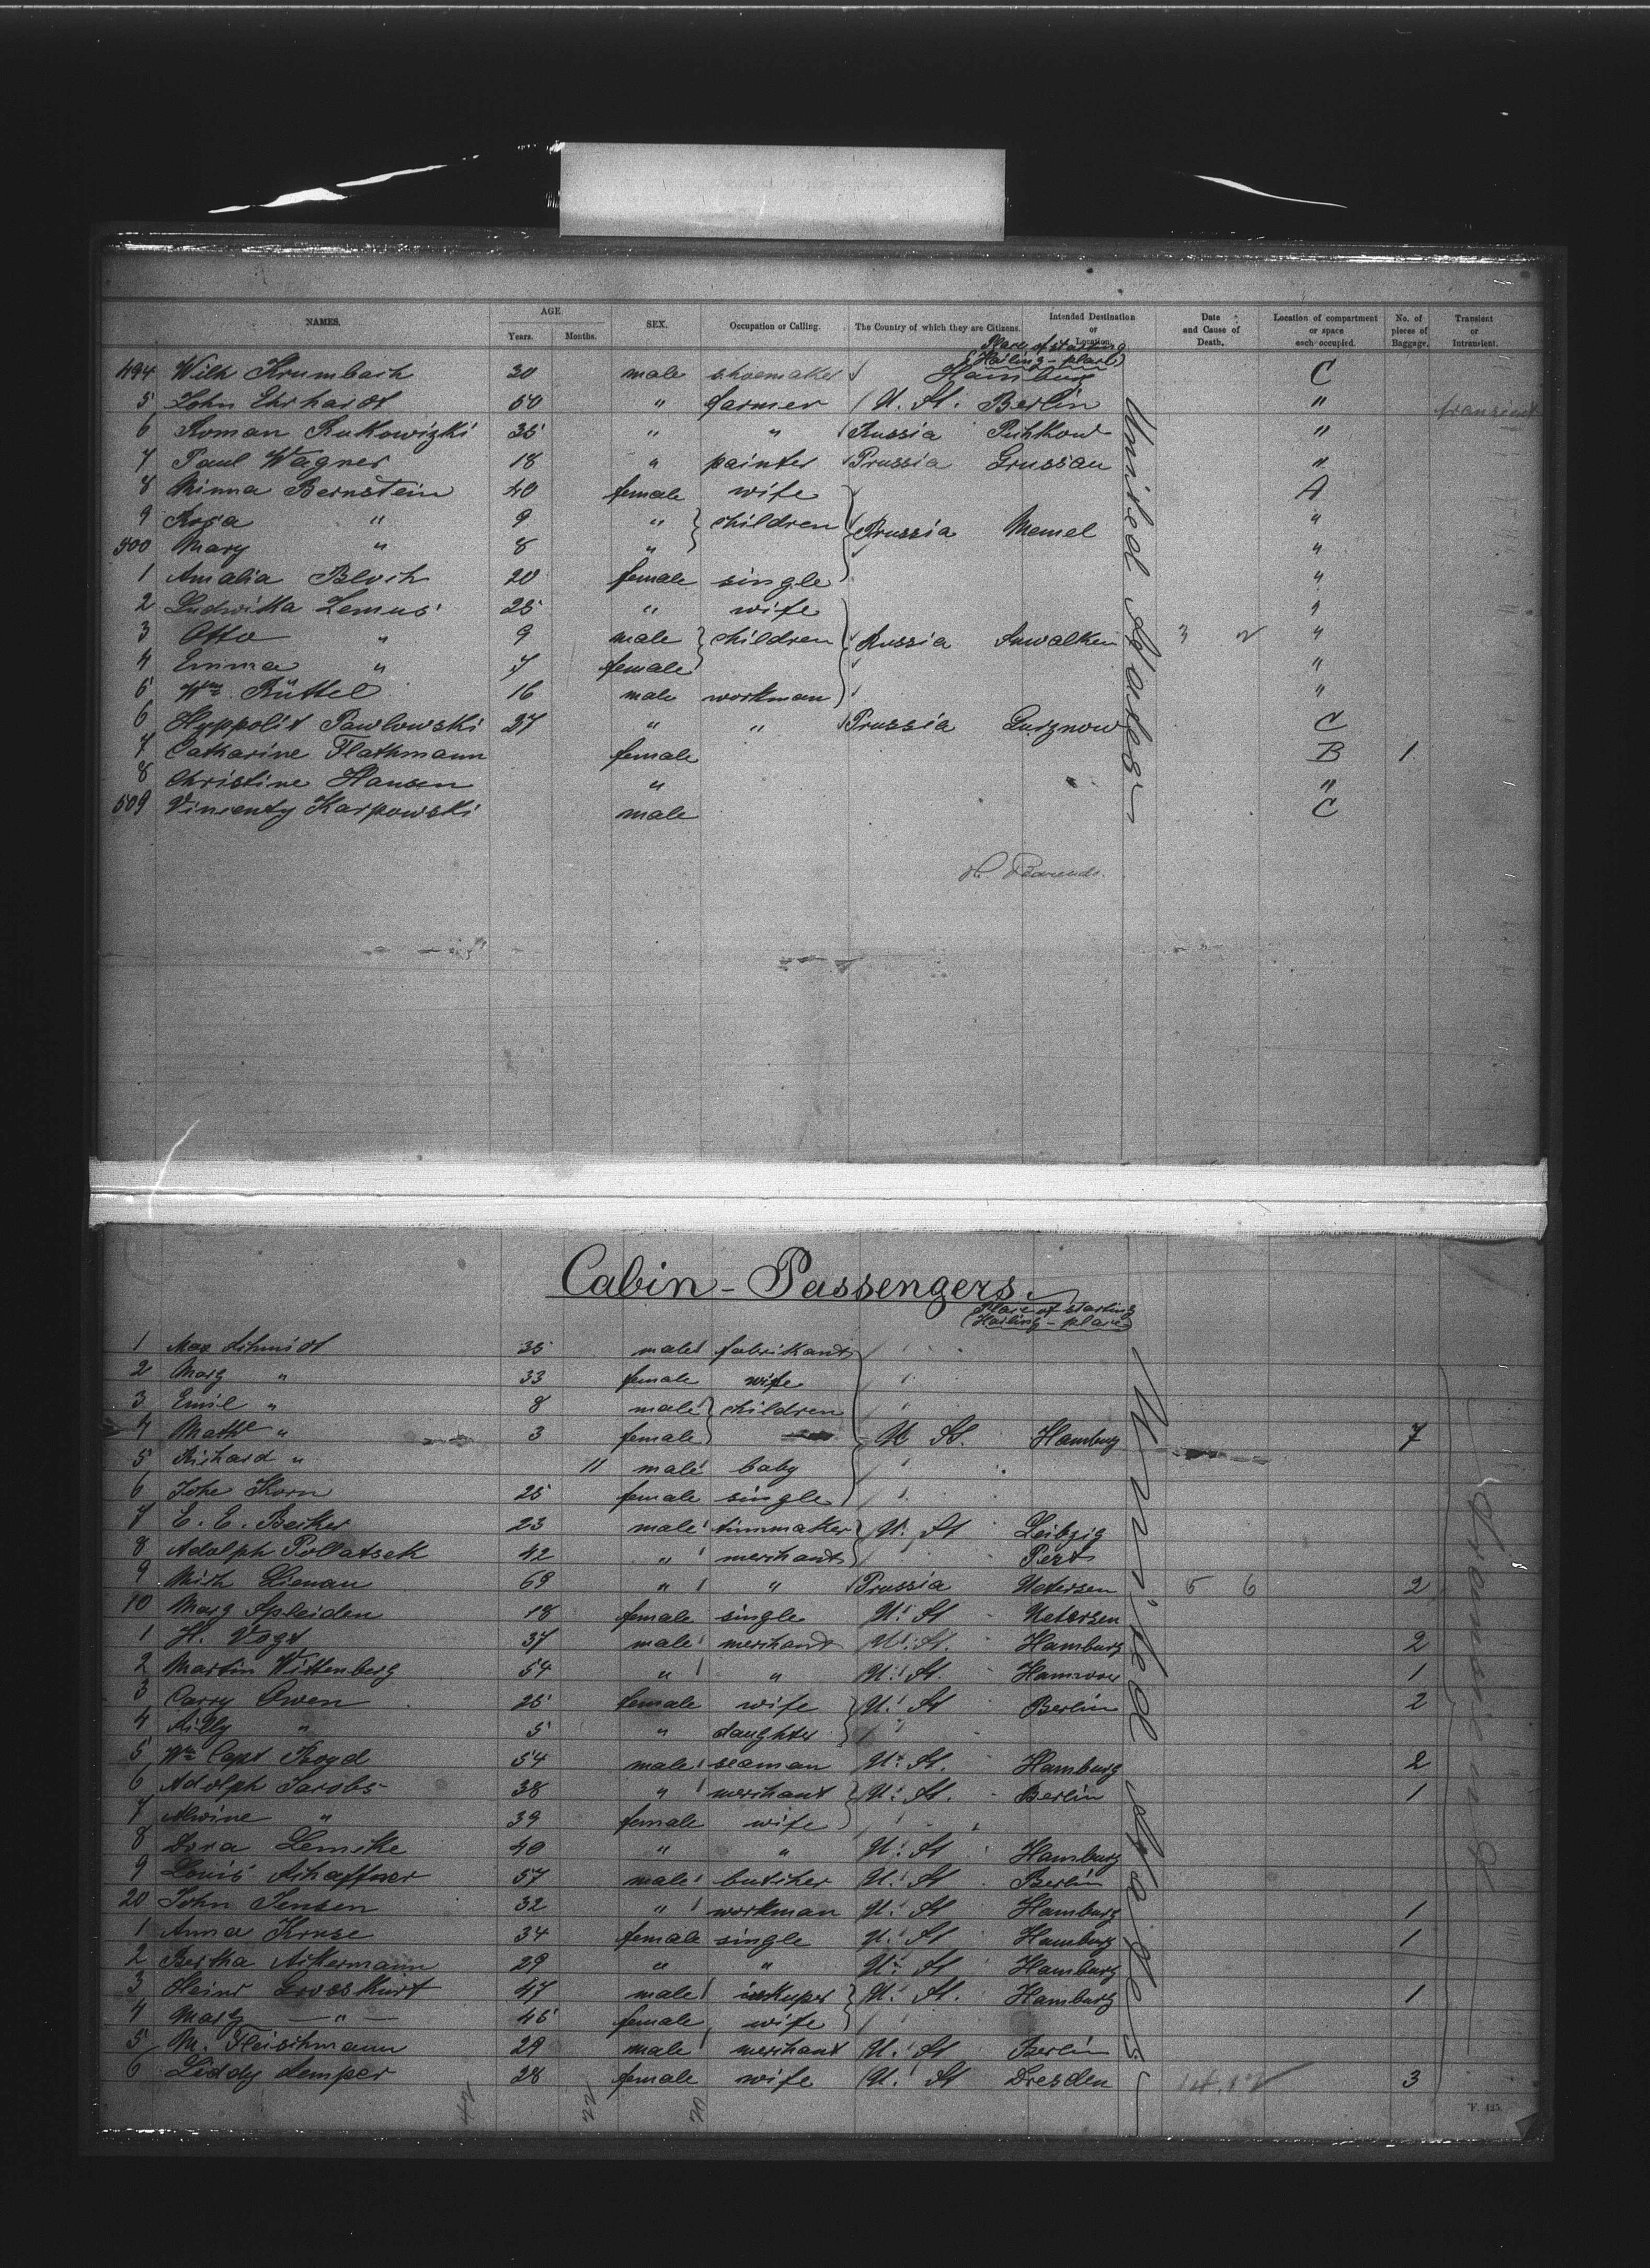 NAMES. AGE Years. Months. SEX. Occupation or Calling. The Country of which they are Citizens. Intended Destination or Location. Date and Cause of Death. Location of compartment or space each occupied. No. of pieces of Baggage. Transient or Intransient.
Place of starting
(Hailing-place)
494 Wilh Krumbach 30 male shoemaker Hamburg C
5 John Ehrhardt 50 " farmer U. St. Berlin " transient
6 Roman Rutkowizki 35 " " Russia "
7 Paul Wagner 18 " painter Prussia Grussau "
8 Minna Bernstein 40 female wife A
9 Rosa " 9 " children Prussia Memel "
500 Mary " 8 " "
1 Amalia Bloch 20 female single "
2 Ludwikka Lemus 25 " wife "
3 Otto " 9 male children Russia Suwalken "
4 Emma " 7 female "
5 Wm Rüttel 16 male workman "
6 Hyppolit Pawlowski 27 " " Prussia Gurznow C
7 Catharine Flathmann female B 1
8 Christine Hansen " "
509 Vincenty Karpowski male C
United States
H. Barends.
Cabin-Passengers.
Place of starting
(Hailing-place)
1 Max Schmidt 35 male fabrikant
2 Marg " 33 female wife
3 Emil " 8 male children
4 Mathe " 3 female U. St. Hamburg 7
5 Richard " 11 male baby
6 Johe Korn 25 female single
7 E. E. Becker 23 male U. St Leibzig
8 Adolph Pollatsek 42 " merchant Pest
9 Mich Lienau 69 " " Prussia Uetersen 5 6 2
10 Marg Spleiden 18 female single U. St Uetersen
1 H. Vogt 37 male merchant U. St. Hamburg 2
2 Martin Wittenberg 54 " " U. St. Hannover 1
3 Carry Owen 25 female wife U. St Berlin 2
4 " 5 " daughter
5 Wm Capt Boyd 54 male seaman U. St. Hamburg 2
6 Adolph Jacobs 38 " merchant U. St. Berlin 1
7 Alwine " 39 female wife
8 Dora Lemcke 40 " " U. St Hamburg
9 Louis Schaffner 57 male butcher U. St Berlin
20 John Jensen 32 " workman U. St Hamburg 1
1 Anna Kruse 34 female single U. St Hamburg 1
2 Bertha Ackermann 29 " " U. St Hamburg
3 Heinr Grosskurt 47 male U. St. Hamburg 1
4 Marg — " — 45 female wife
5 M. Fleischmann 29 male merchant U. St Berlin
6 Liddy Semper 28 female wife U. St Dresden 3
United States
42 22 20
F. 425.